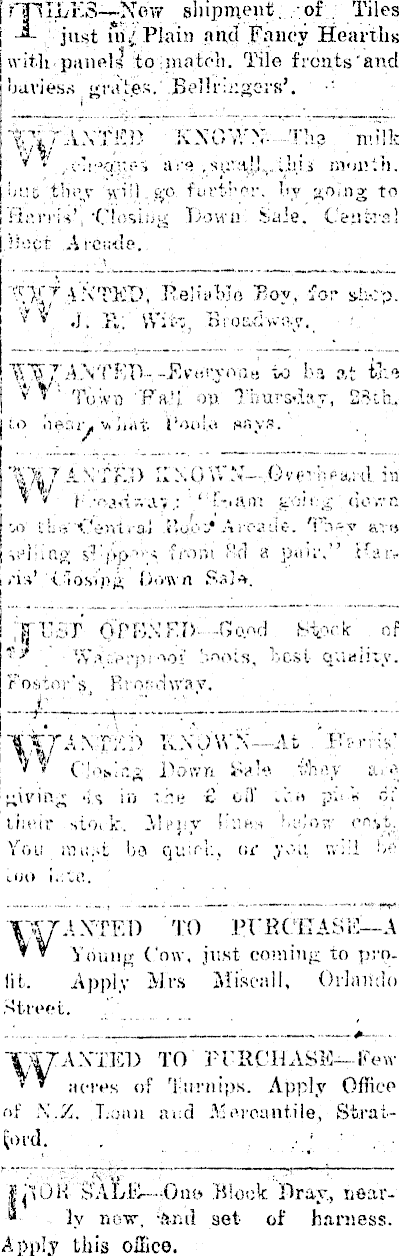 TILES—New shipment of Tiles
just in, Plain and Fancy Hearths
with panels to match. Tile fronts and
barless grates. Bellringers'.
WANTED KNOWN—The milk
cheques are small this month,
but they will go further, by going to
Harris' Closing Down Sale, Central
Boot Arcade.
WANTED, Reliable Boy, for shop.
J. R. Witt, Broadway.
WANTED—Everyone to be at the
Town Hall on Thursday, 28th.
to hear what Poole says.
WANTED KNOWN—Overheard in
Broadway: "I am going down
to the Central Boot Arcade. They are
selling slippers from 8d a pair." Har-
ris' Closing Down Sale.
JUST OPENED—Good Stock of
Waterproof boots, best quality.
Foster's, Broadway.
WANTED KNOWN—At Harris'
Closing Down Sale they are
giving 4s in the £ off the pick of
their stock. Many lines below cost.
You must be quick, or you will be
too late.
WANTED TO PURCHASE—A
Young Cow, just coming to pro-
fit. Apply Mrs Miscall, Orlando
Street.
WANTED TO PURCHASE—Few
acres of Turnips. Apply Office
of N.Z. Loan and Mercantile, Strat-
ford.
FOR SALE—One Block Dray, near-
ly new, and set of harness.
Apply this office.